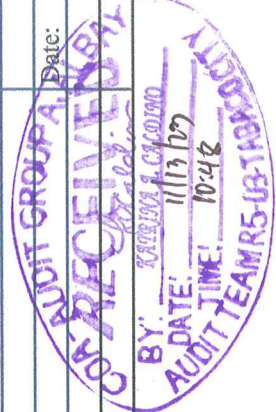 Date:
COA- AUDIT GROUP A, ALBAY
RECEIVED
BY:
KATRINA A.
DATE: 11/13/27
TIME: 10:48
AUDIT TEAM R5-07-TABACO CITY